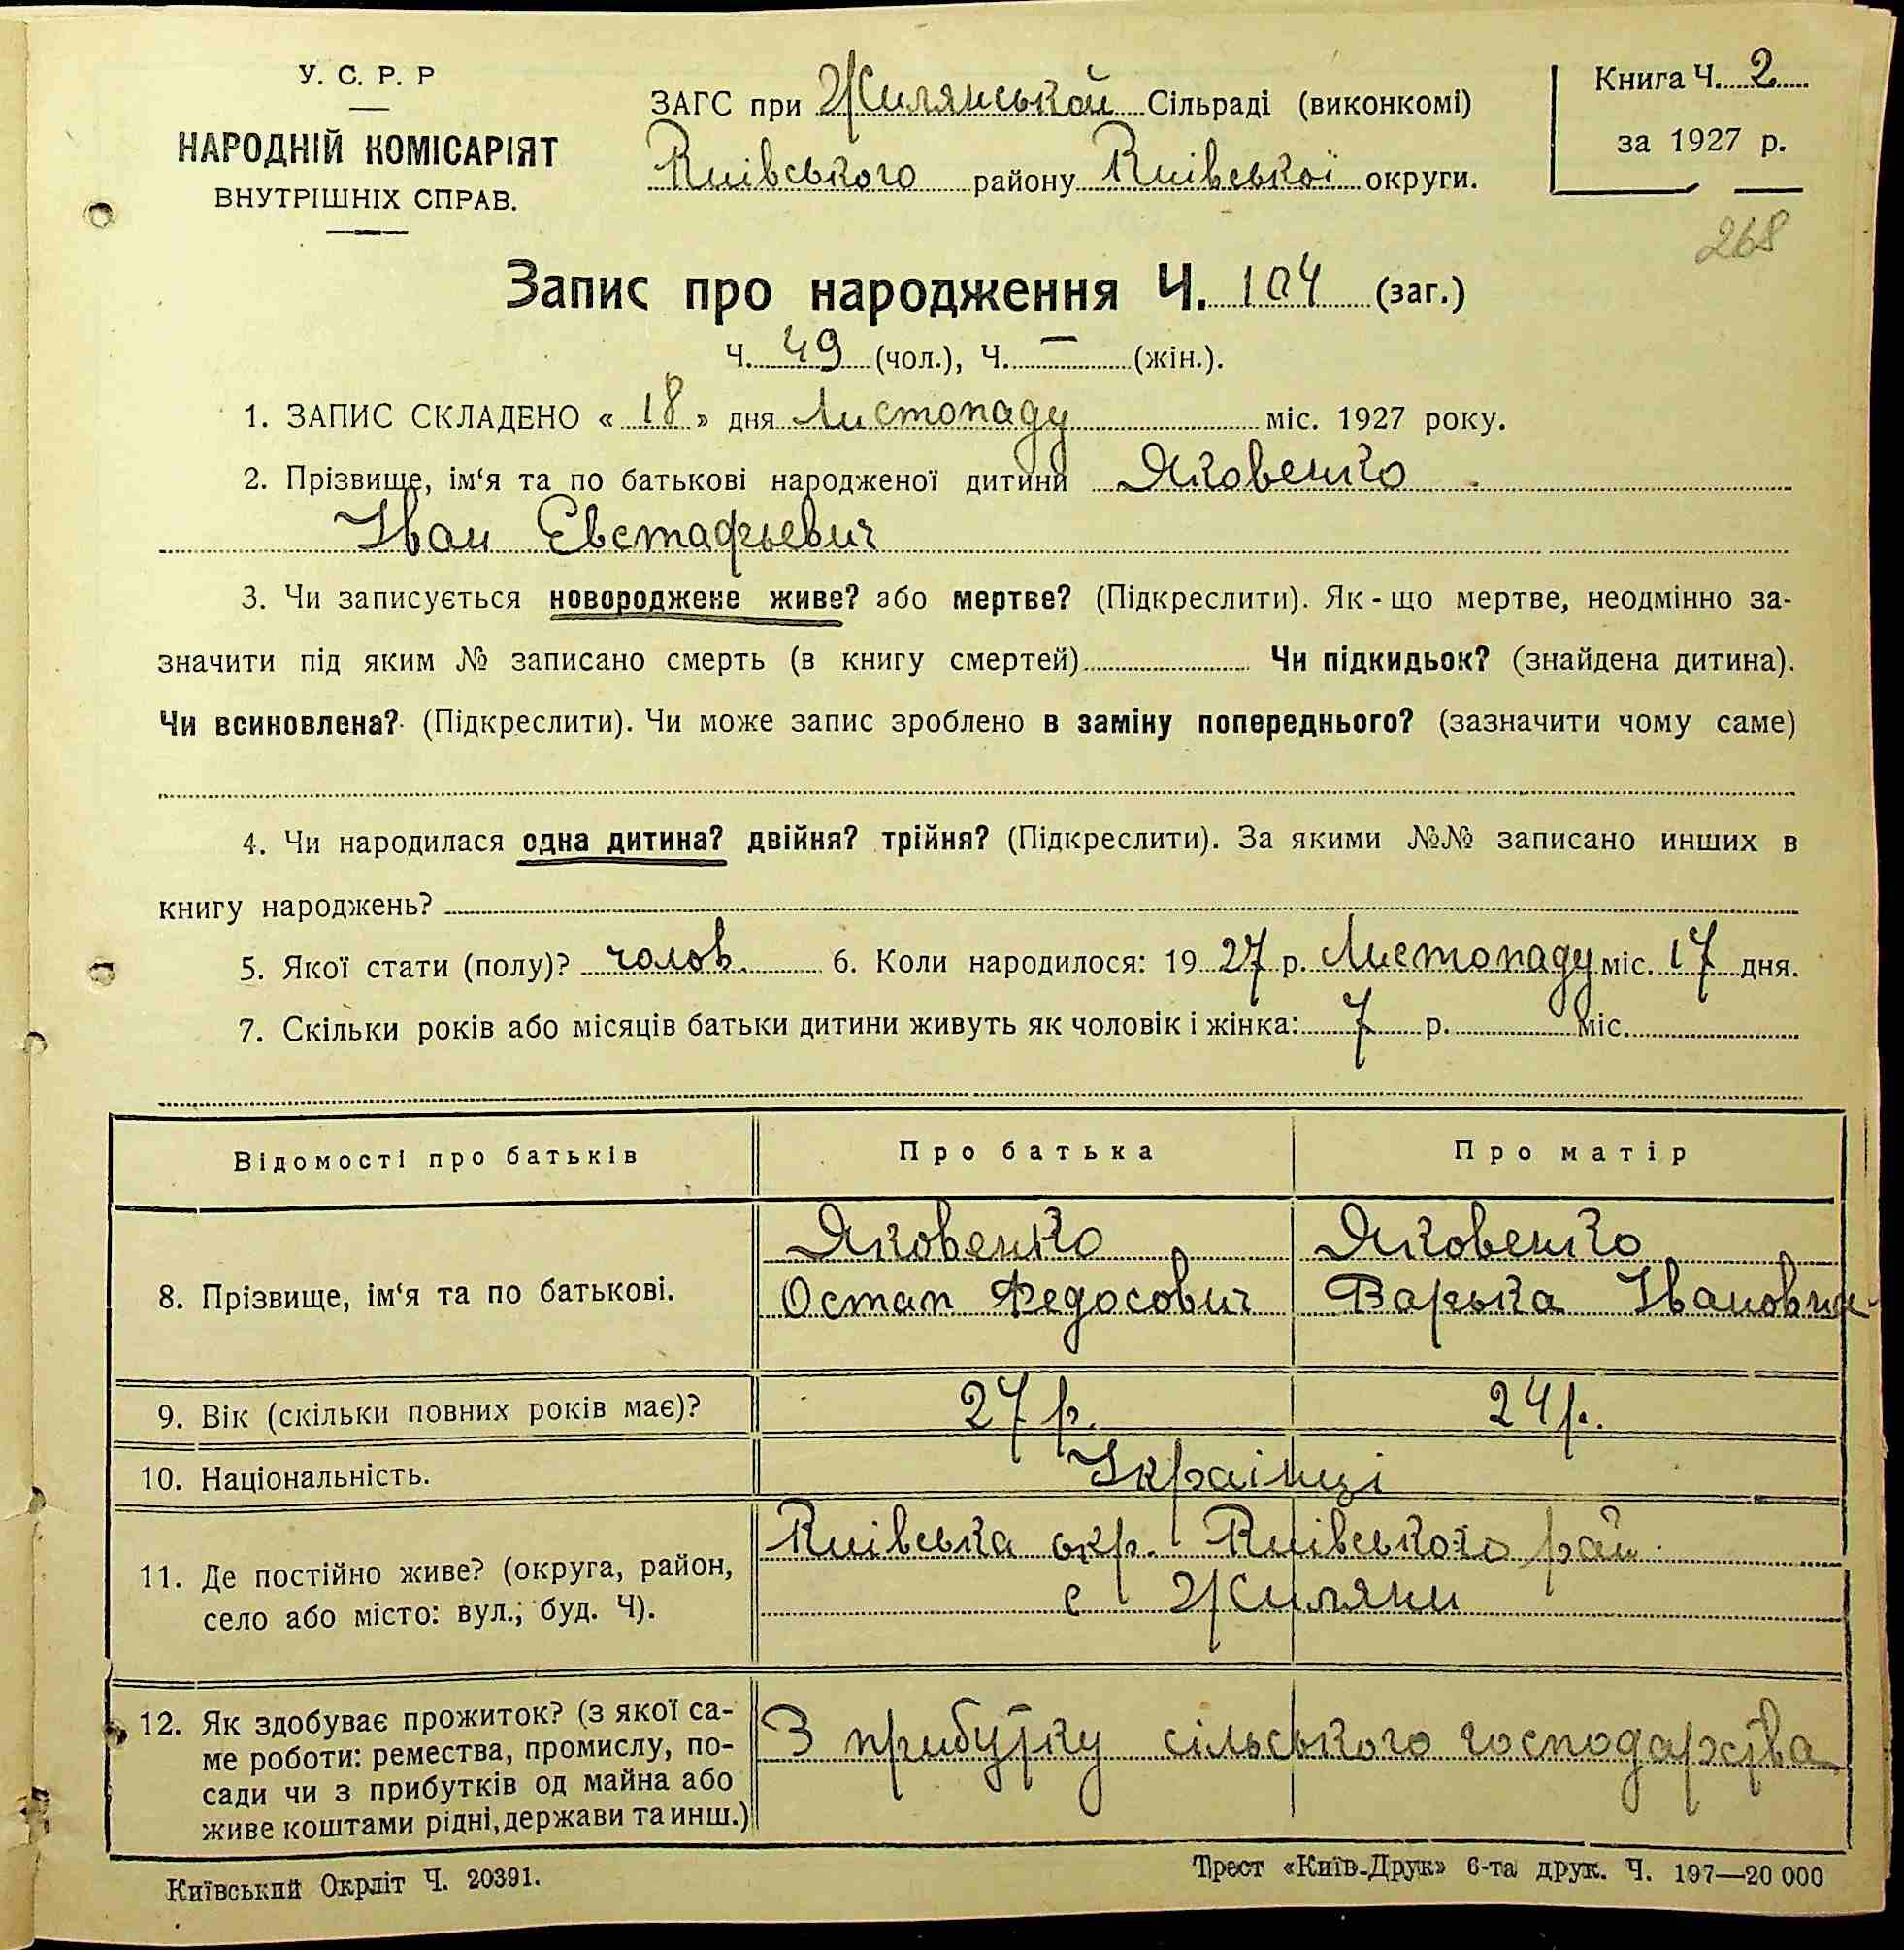 У. С. Р. Р
НАРОДНІЙ КОМІСАРІЯТ
ВНУТРІШНІХ СПРАВ.
ЗАГС при Жилянській Сільраді (виконкомі)
Київського району Київської округи.
Книга Ч. 2
за 1927 р.
268
Запис про народження Ч. 104 (заг.)
Ч. 49 (чол.), Ч. — (жін.).
1. ЗАПИС СКЛАДЕНО « 18 » дня Листопаду міс. 1927 року.
2. Прізвище, ім‘я та по батькові народженої дитини Яковенко
Іван Евстафьевич
3. Чи записується новороджене живе? або мертве? (Підкреслити). Як-що мертве, неодмінно за-
значити під яким № записано смерть (в книгу смертей) Чи підкидьок? (знайдена дитина).
Чи всиновлена? (Підкреслити). Чи може запис зроблено в заміну попереднього? (зазначити чому саме)
4. Чи народилася одна дитина? двійня? трійня? (Підкреслити). За якими №№ записано инших в
книгу народжень?
5. Якої стати (полу)? чолов. 6. Коли народилося: 1927 р. Листопаду міс. 17 дня.
7. Скільки років або місяців батьки дитини живуть як чоловік і жінка: 7 р. міс.
Відомості про батьків Про батька Про матір
8. Прізвище, ім‘я та по батькові.
Яковенко Яковенко
Остап Федосович Варька Івановна
9. Вік (скільки повних років має)? 27 р. 24 р.
10. Національність. Українці
11. Де постійно живе? (округа, район,
село або місто: вул.; буд. Ч).
Київська окр. Київського рай.
с Жиляни
12. Як здобуває прожиток? (з якої са-
ме роботи: ремества, промислу, по-
сади чи з прибутків од майна або
живе коштами рідні, держави та инш.)
З прибутку сільського господарства
Київський Окрліт Ч. 20391.
Трест «Київ-Друк» 6-та друк. Ч. 197—20 000